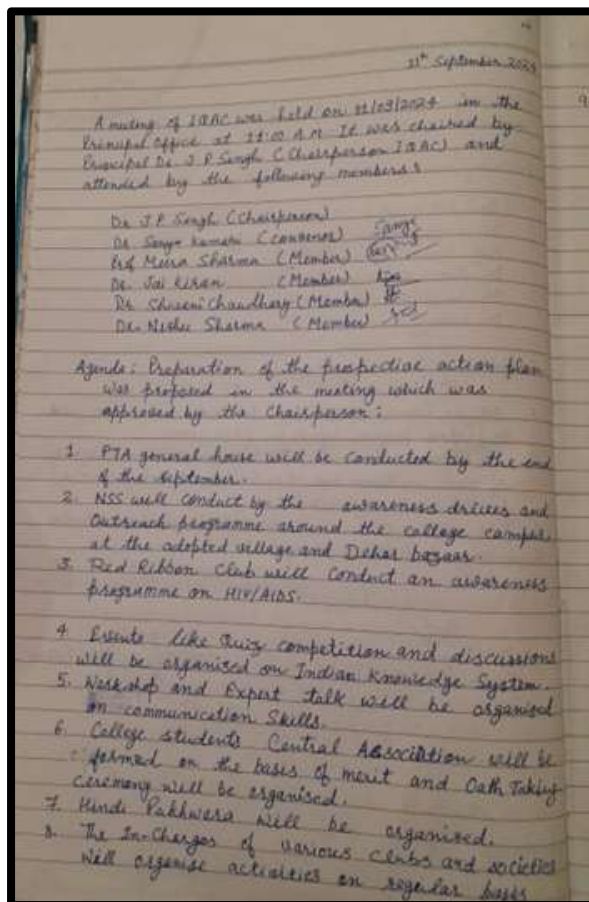 11th September 2024
A meeting of IQAC was held on 11/09/2024 in the
Principal Office at 11:00 A.M It was chaired by
Principal Dr. J P Singh (Chairperson IQAC) and
attended by the following members:
Dr J.P. Singh (Chairperson)
Dr Sanju Kumari (Convenor)
Prof Meera Sharma (Member)
Dr. Jai Kiran (Member)
Dr Shivani Chaudhary (Member)
Dr. Nishu Sharma (Member)
Agenda: Preparation of the prospective action plan
was proposed in the meeting which was
approved by the Chairperson:
1. PTA general house will be conducted by the end
of the september.
2. NSS will conduct by the awareness drives and
Outreach programme around the college campus
at the adopted village and Dehar bazaar.
3. Red Ribbon Club will conduct an awareness
programme on HIV/AIDS.
4 Events like Quiz competition and discussions
will be organised on Indian Knowledge System.
5. Workshop and Expert talk will be organised
on communication Skills.
6. College students Central Association will be
formed on the bases of merit and Oath Taking
Ceremony will be organised.
7. Hindi Pakhwara will be organised.
8. The In-Charges of various clubs and societies
will organise activities on regular basis